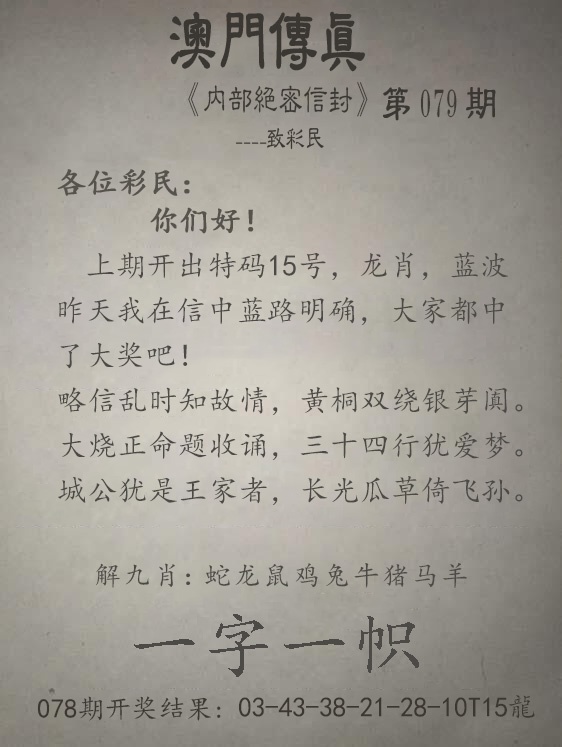 澳門傳眞
《内部絕密信封》第079期
----致彩民
各位彩民：
你们好！
上期开出特码15号，龙肖，蓝波
昨天我在信中蓝路明确，大家都中
了大奖吧！
略信乱时知故情，黄桐双绕银芽阗。
大烧正命题收诵，三十四行犹爱梦。
城公犹是王家者，长光瓜草倚飞孙。
解九肖：蛇龙鼠鸡兔牛猪马羊
一字一帜
078期开奖结果：03-43-38-21-28-10T15龍